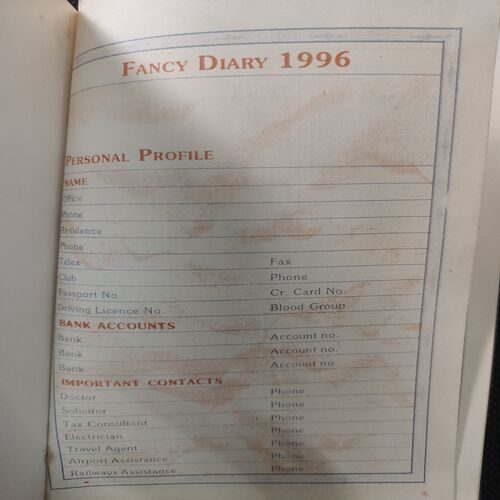 FANCY DIARY 1996
PERSONAL PROFILE
NAME
Office
Phone
Residence
Phone
Telex Fax
Club Phone
Passport No Cr. Card No.
Driving Licence No Blood Group
BANK ACCOUNTS
Bank Account no.
Bank Account no.
Bank Account no.
IMPORTANT CONTACTS
Doctor Phone
Solicitor Phone
Tax Consultant Phone
Electrician Phone
Travel Agent Phone
Airport Assistance Phone
Railways Assistance Phone